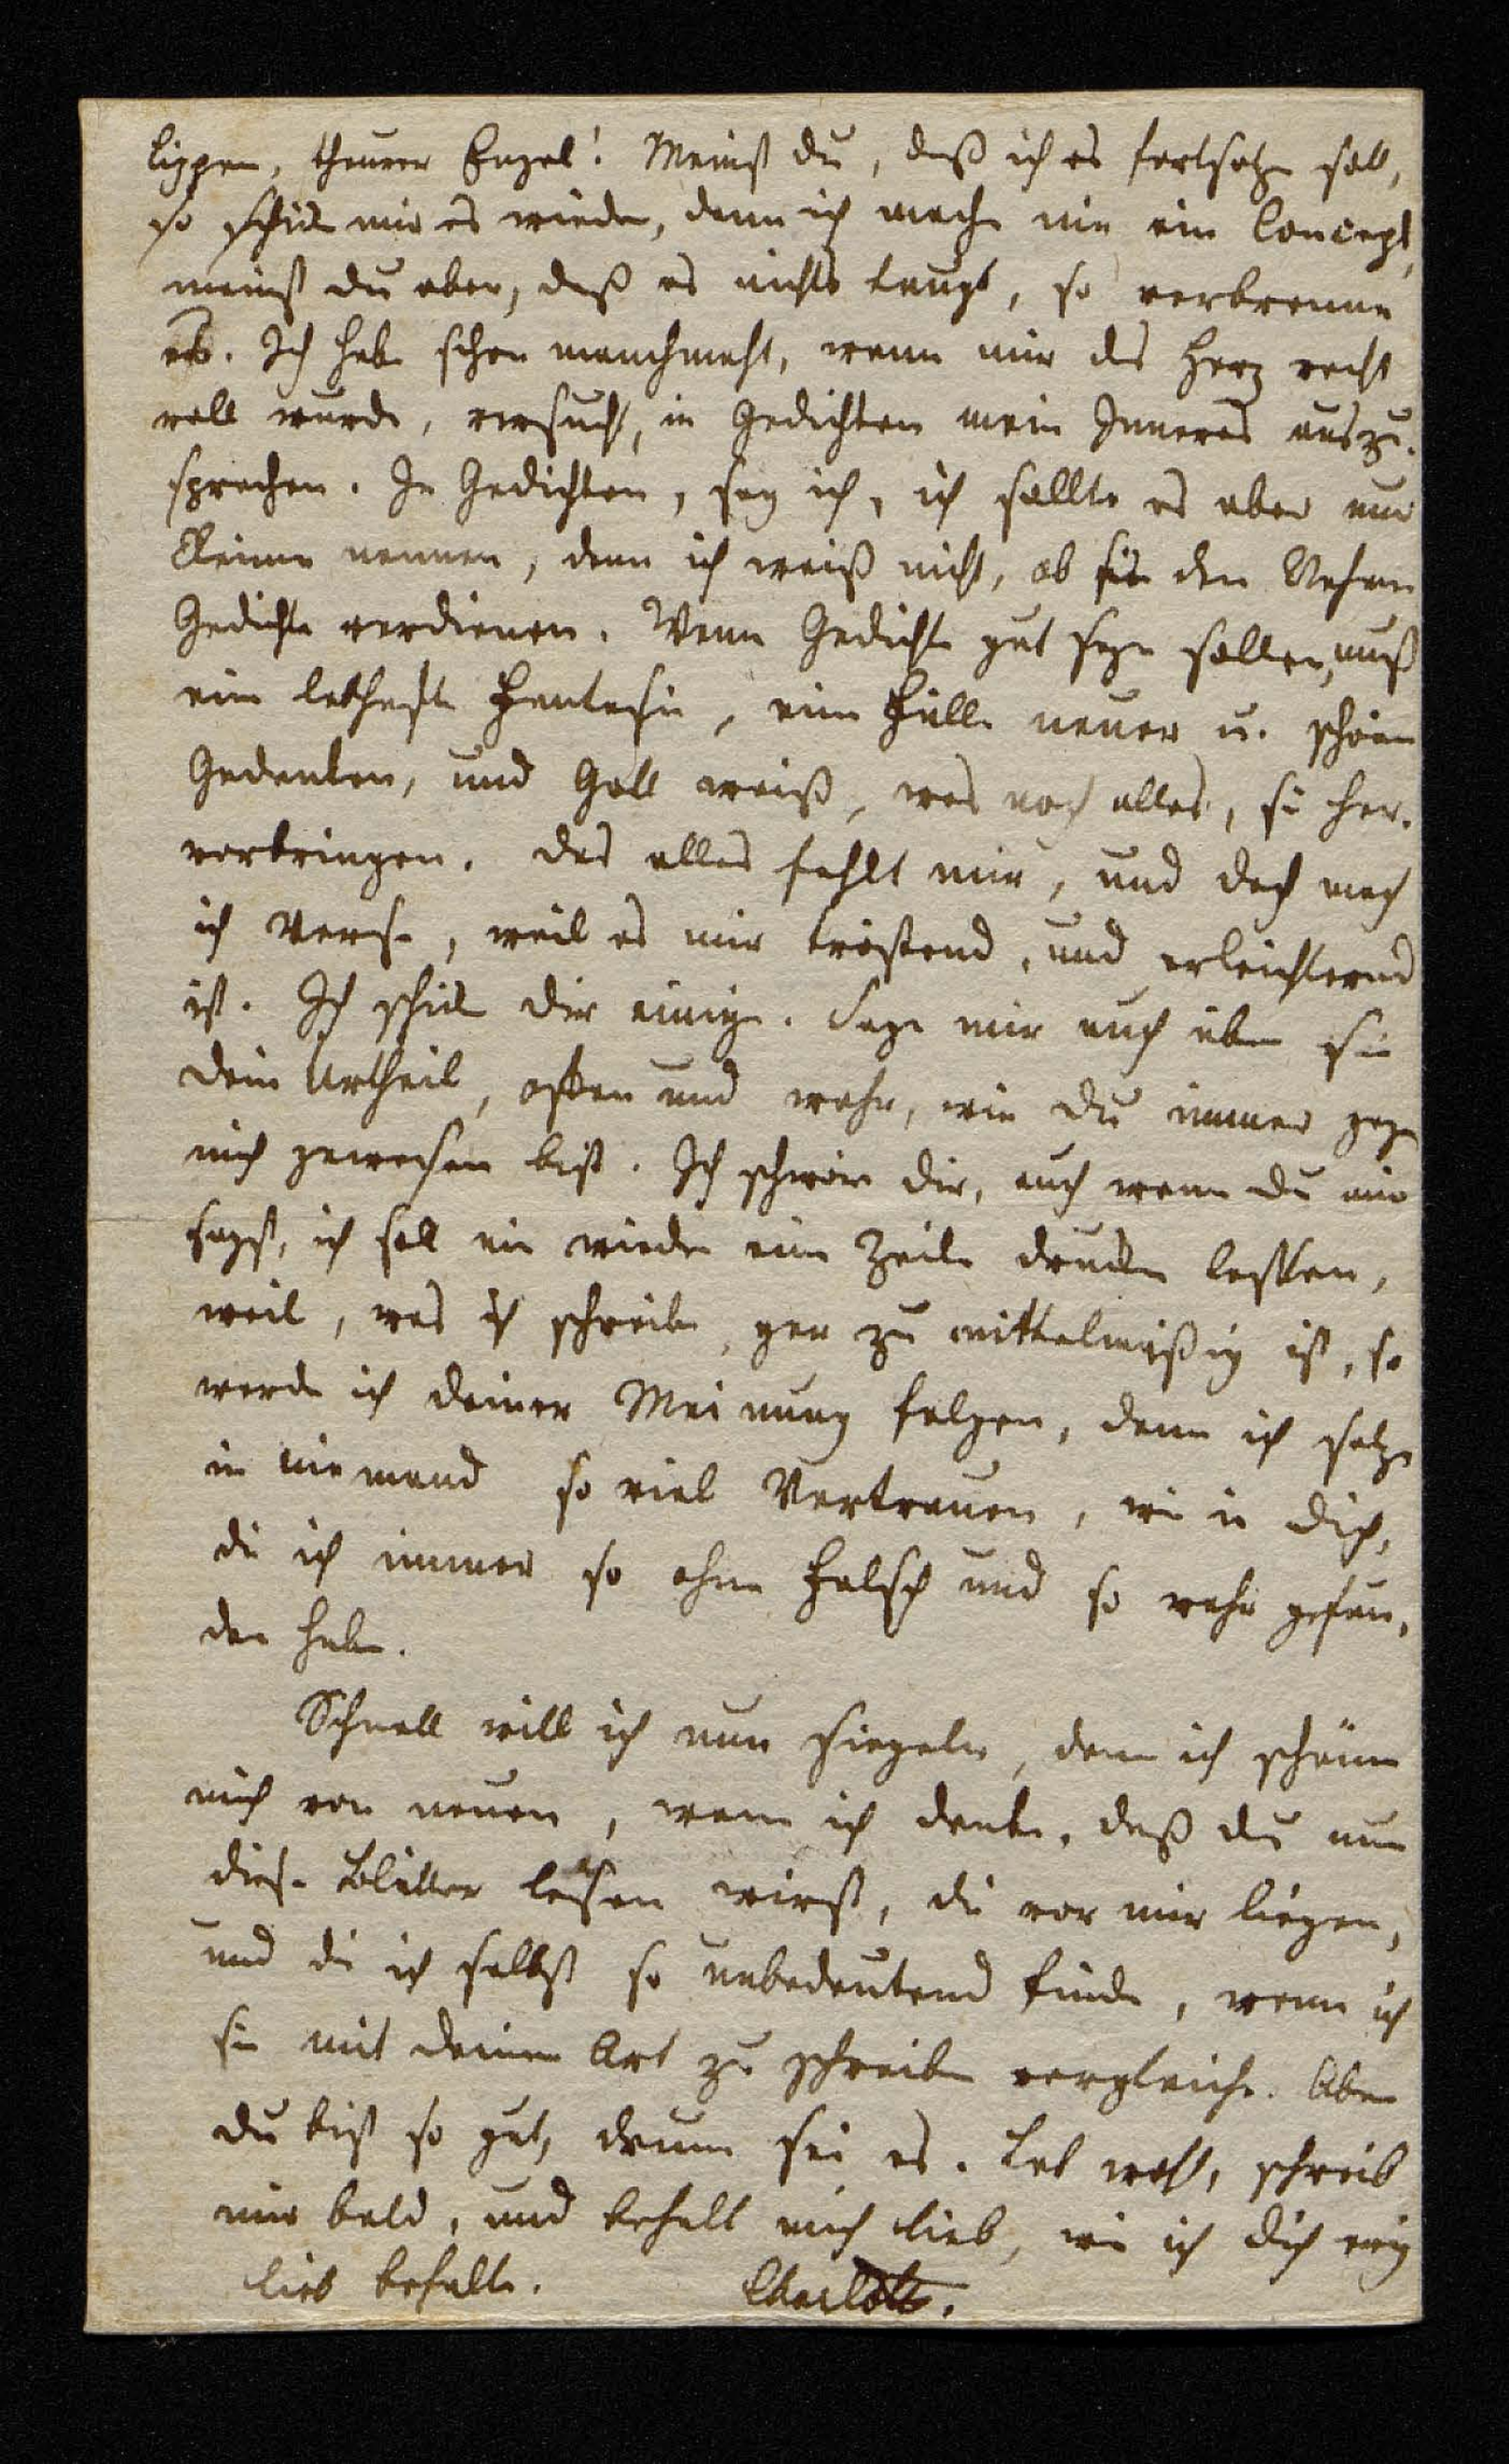 Lippen, theurer Engel! Meinst du, daß ich es fortsetzen soll,
so schick mir es wieder, denn ich mache nie ein Concept,
meinst du aber, daß es nichts taugt, so verbrenne
es. Ich habe schon manchmahl, wenn mir das Herz recht
voll wurde, versucht, in Gedichten mein Inneres auszu-
sprechen. In Gedichten, sag ich, ich sollte es aber nur
Reime nennen, denn ich weiß nicht, ob sie den Nahmen
Gedichte verdienen. Wenn Gedichte gut seyn sollen, muß
eine lebhafte Fantasie, eine Fülle neuer u. schöner
Gedanken, und Gott weiß, was noch alles, sie her-
vorbringen. Das alles fehlt mir, und doch mach
ich Verse, weil es mir tröstend, und erleichternd
ist. Ich schicke dir einige. Sage mir auch über sie
dein Urtheil, offen und wahr, wie du immer gegen
mich gewesen bist. Ich schwöre dir, auch wenn du mir
sagst, ich soll nie wieder eine Zeile drucken lassen,
weil, was ich schreibe, gar zu mittelmäßig ist, so
werde ich deiner Meinung folgen, denn ich setze
in niemand so viel Vertrauen, wie in dich,
die ich immer so ohne Falsch und so wahr gefun-
den habe.
Schnell will ich nun siegeln, denn ich schäme
mich von neuen, wenn ich denke, daß du nun
diese Blätter lesen wirst, die vor mir liegen,
und die ich selbst so unbedeutend finde, wenn ich
sie mit deiner Art zu schreiben vergleiche. Aber
du bist so gut, drum sei es. Leb wohl, schreib
mir bald, und behalt mich lieb, wie ich dich ewig
lieb behalte. Charlotte.